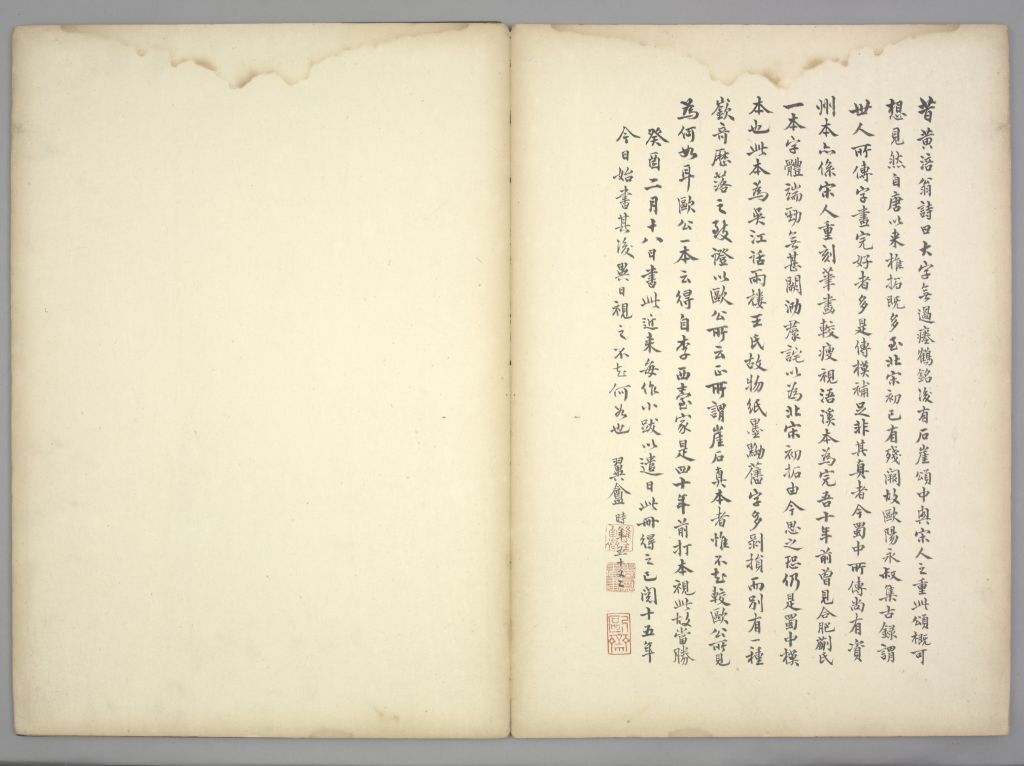 昔黃涪翁詩曰大字無過瘞鶴銘後有石崖頌中興宋人之重此頌概可
想見然自唐以來椎拓既多至北宋初已有殘闕故歐陽永叔集古錄謂
世人所傳字畫完好者多是傳模補足非其真者今蜀中所傳尚有資
州本亦係宋人重刻筆畫較瘦視浯溪本為完吾十年前曾見合肥蒯氏
一本字體端勁無甚闕泐羣詫以為北宋初拓由今思之恐仍是蜀中模
本也此本為吳江話雨樓王氏故物紙墨黝舊字多剝損而別有一種
嶔奇歷落之致證以歐公所云正所謂崖石真本者惟不知較歐公所見
為何如耳歐公一本云得自李西臺家是四十年前打本視此故當勝
癸酉二月十八日書此近來每作小跋以遣日此冊得之已閱十五年
今日始書其後異日視之不知何如也 翼盦時年五十又二